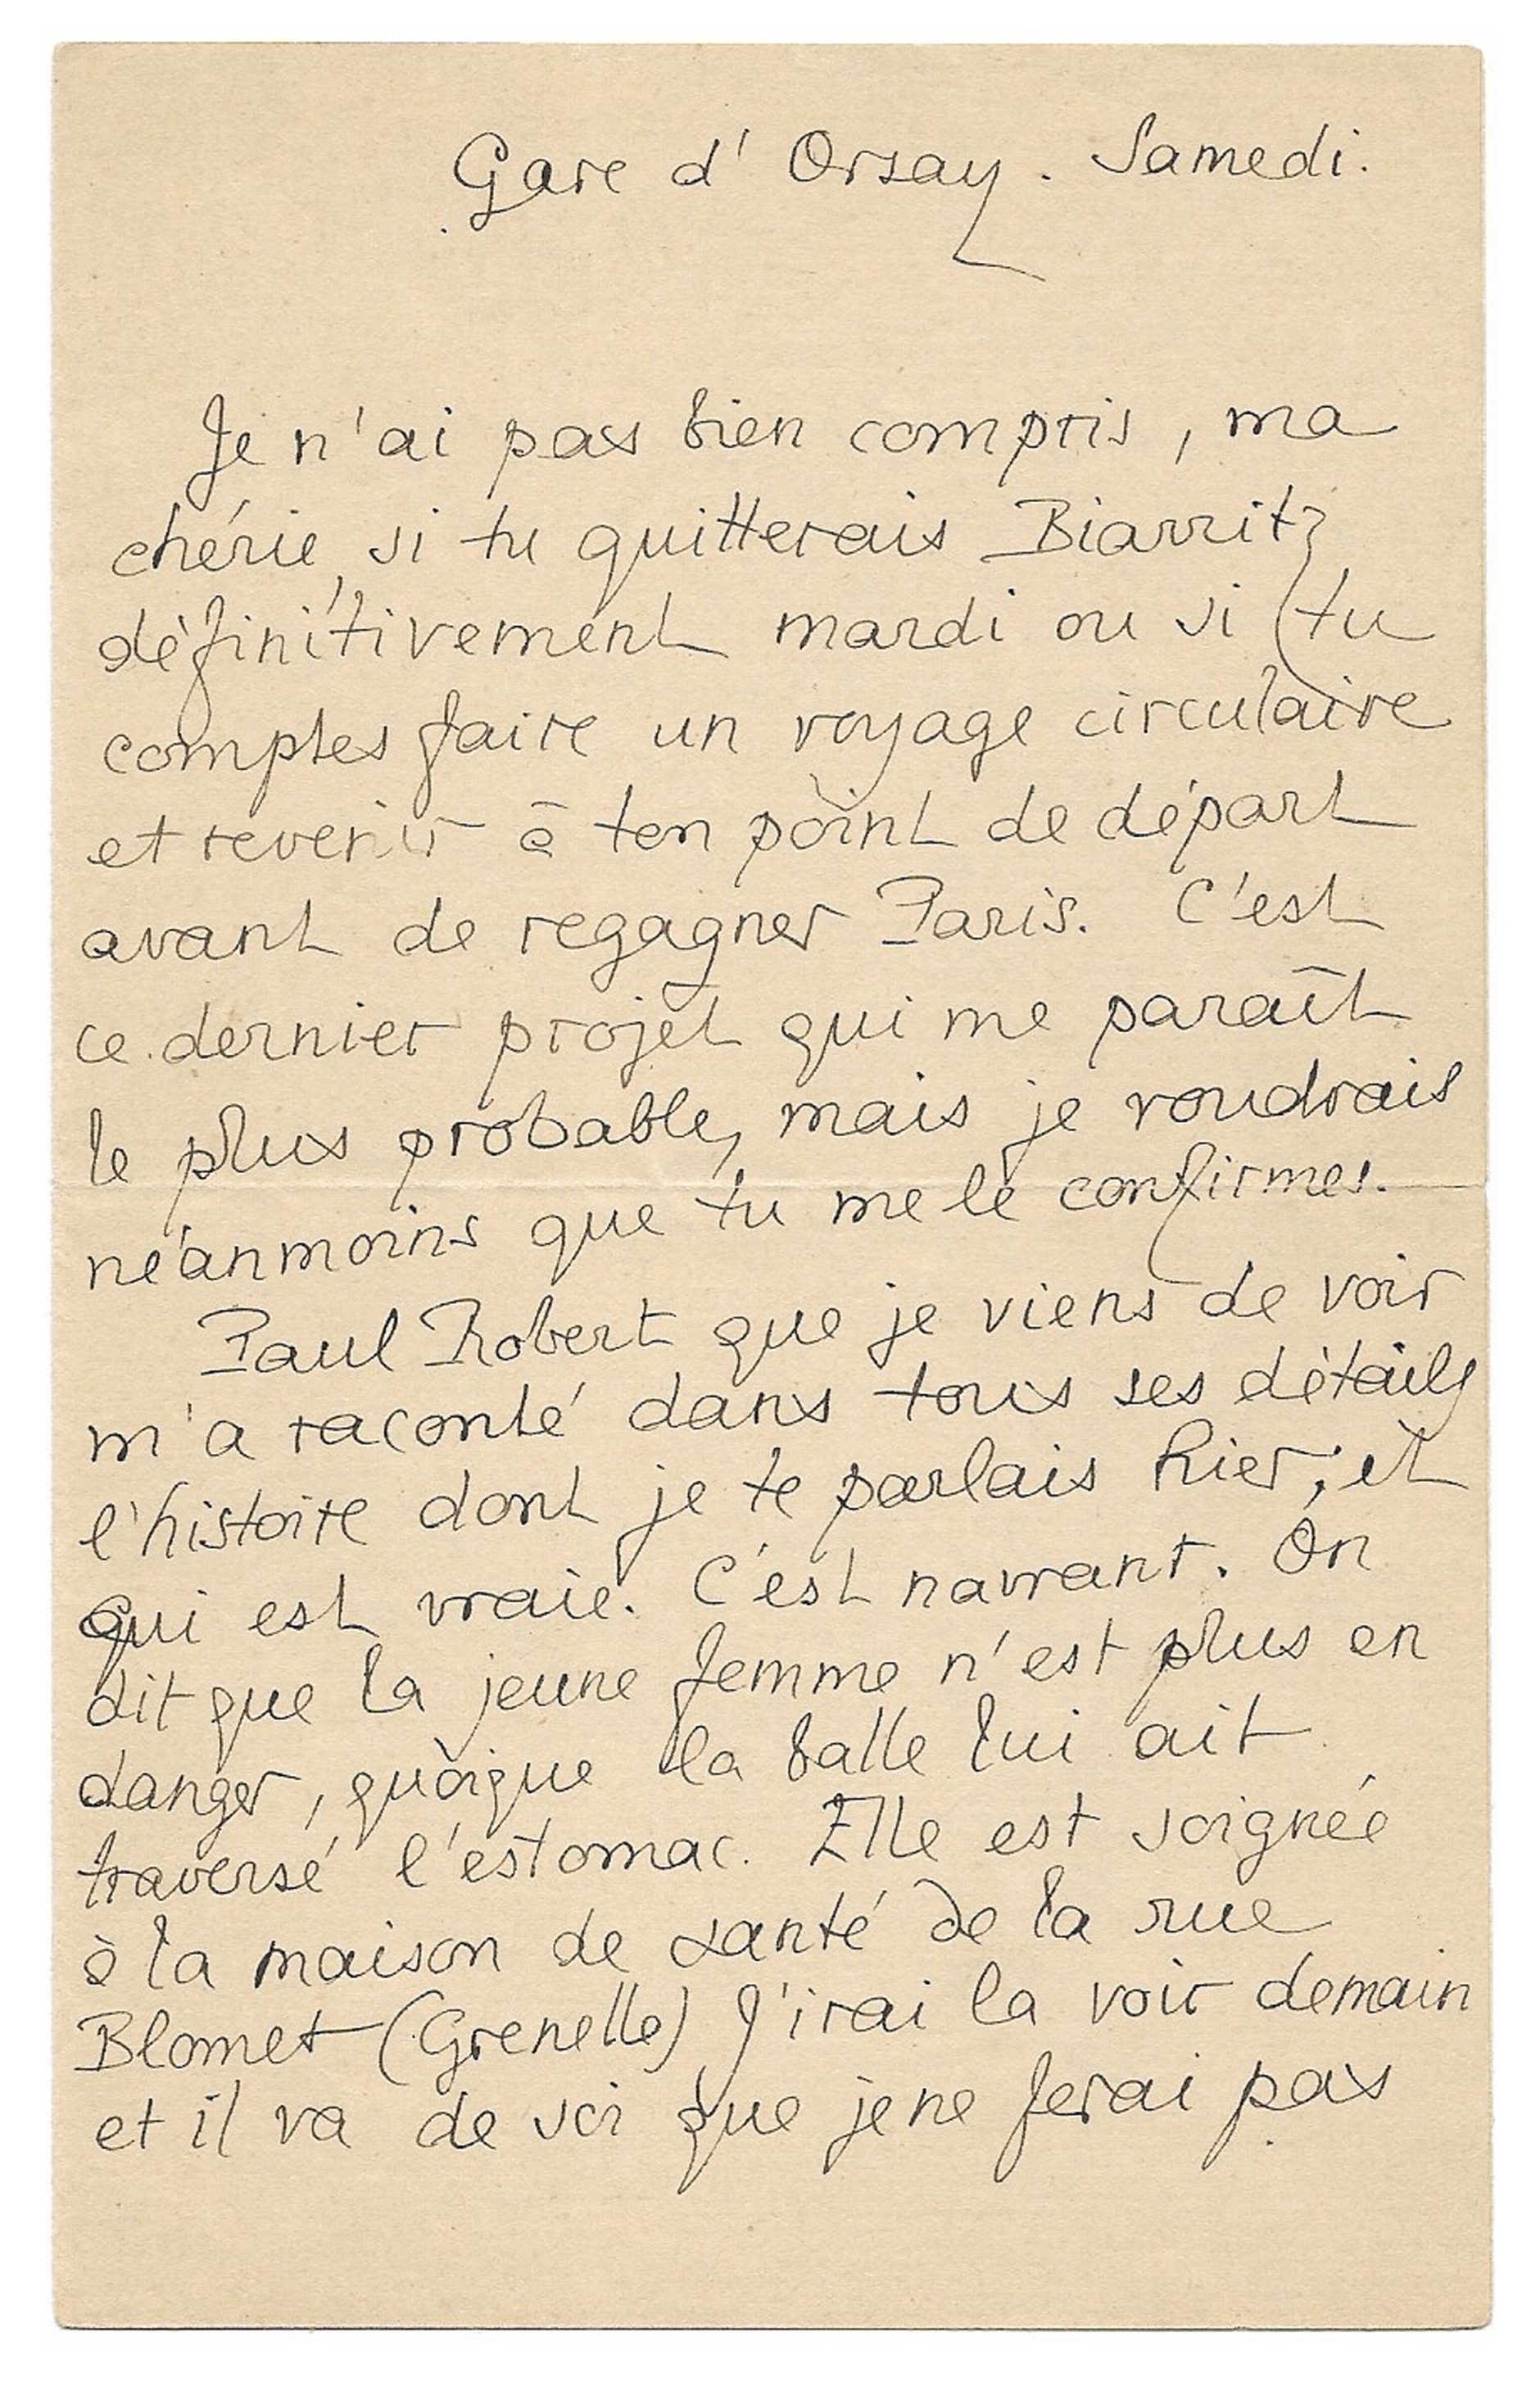 Gare d'Orsay. Samedi.
Je n'ai pas bien compris, ma
chérie, si tu quitterais Biarritz
définitivement mardi ou si tu
comptes faire un voyage circulaire
et revenir à ton point de départ
avant de regagner Paris. C'est
ce dernier projet qui me paraît
le plus probable, mais je voudrais
néanmoins que tu me le confirmes.
Paul Robert que je viens de voir
m'a raconté dans tous ses détails
l'histoire dont je te parlais hier, et
qui est vraie. C'est navrant. On
dit que la jeune femme n'est plus en
danger, quoique la balle lui ait
traversé l'estomac. Elle est soignée
à la maison de santé de la rue
Blomet (Grenelle) J'irai la voir demain
et il va de soi que je ne ferai pas